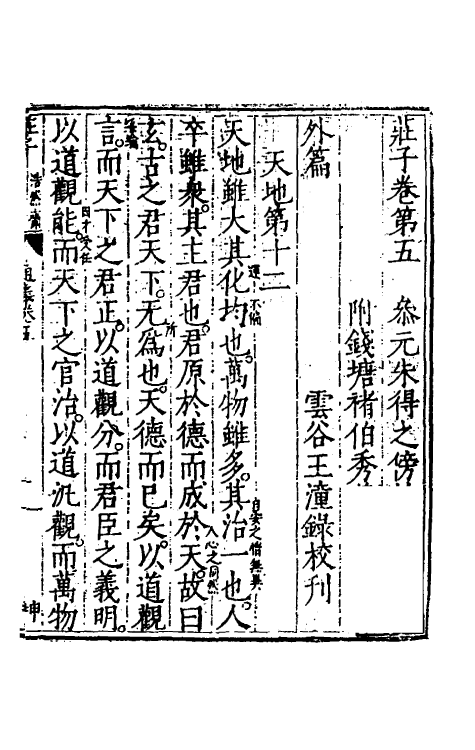 莊子卷第五 叅元朱得之傍
附錢塘褚伯秀
雲谷王潼錄校刊
外篇
天地第十二
天地雖大其化均也萬物雖多其治一也人
運 不偏
自安之僃無異
卒雖衆其主君也君原於德而成於天故曰
人心之同然
玄古之君天下无爲也天德而已矣以道觀
所
言而天下之君正以道觀分而君臣之義明
以道觀能而天下之官治以道汎觀而萬物
因才受任
莊子 浩然齋
通義卷五
一
坤